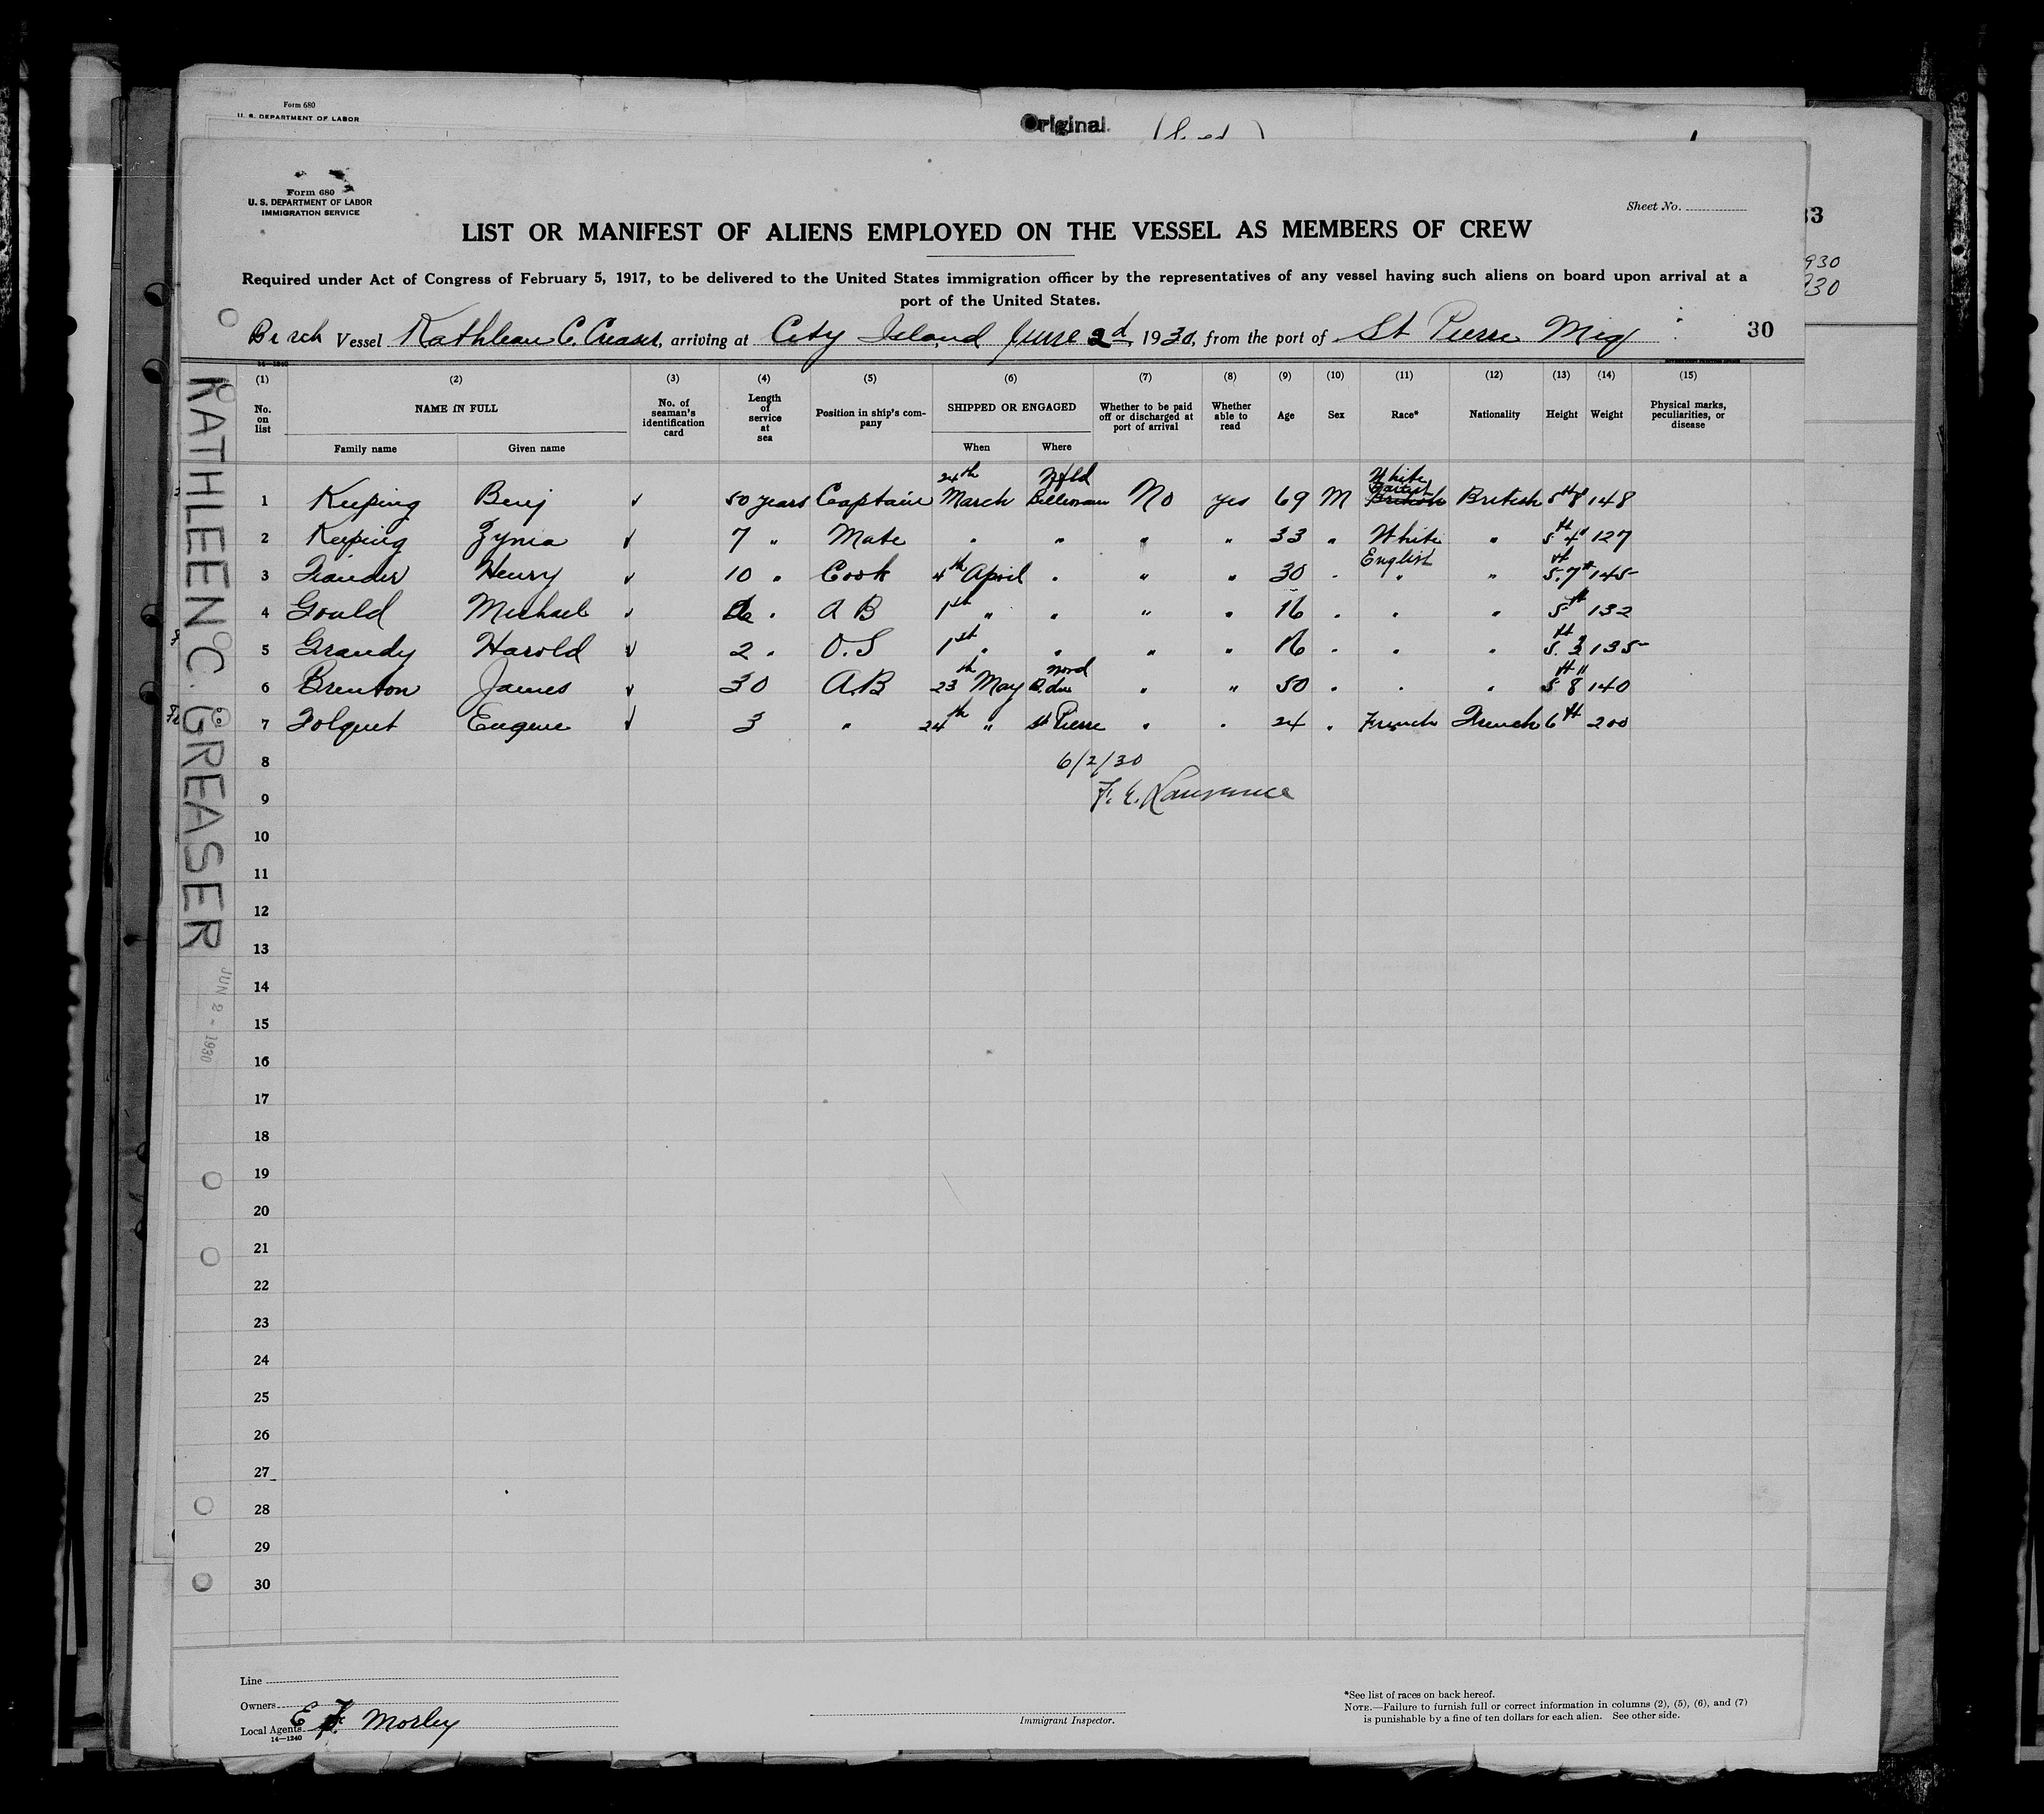 Form 680
U. S. DEPARTMENT OF LABOR
Original
Form 680
U. S. DEPARTMENT OF LABOR
IMMIGRATION SERVICE
Sheet No.
33
LIST OR MANIFEST OF ALIENS EMPLOYED ON THE VESSEL AS MEMBERS OF CREW
930
930
Required under Act of Congress of February 5, 1917, to be delivered to the United States immigration officer by the representatives of any vessel having such aliens on board upon arrival at a
port of the United States.
Vessel Kathleen C. Creaser, arriving at City Island June 2d, 1930, from the port of St Pierre Miq 30
14—1240
(1) (2) (3) (4) (5) (6) (7) (8) (9) (10) (11) (12) (13) (14) (15)
No. on list NAME IN FULL No. of seaman's identification card Length of service at sea Position in ship's company SHIPPED OR ENGAGED Whether to be paid off or discharged at port of arrival Whether able to read Age Sex Race* Nationality Height Weight Physical marks, peculiarities, or disease
Family name Given name When Where
1 Keeping Benj ✓ 50 years Captain 24th March Nfld No yes 69 M White British British 5 ft 8 148
2 Keeping ✓ 7 " Mate " " " " 33 " White " 5 ft 4" 127
3 Henry ✓ 10 " Cook 4th April " " " 30 " English " " 5 ft 7" 145
4 Gould Michael ✓ " A B 1st " " " " 16 " " " 5 ft 132
5 Grandy Harold ✓ 2 " O.S 1st " " " " 16 " " " 5 ft 3 135
6 Brenton James ✓ 30 A.B 23th May " " 50 " " " 5 ft 8" 140
7 Folquet Eugene ✓ 3 " 24th " St Pierre " " 24 " French French 6 ft 200
8 6/2/30
9 F. E. Lawrence
10
11
12
13
14
15
16
17
18
19
20
21
22
23
24
25
26
27
28
29
30
KATHLEEN C. GREASER
JUN 2 - 1930
Line
Owners
Local Agents E F Morley
14—1240
Immigrant Inspector.
*See list of races on back hereof.
NOTE.—Failure to furnish full or correct information in columns (2), (5), (6), and (7)
is punishable by a fine of ten dollars for each alien. See other side.